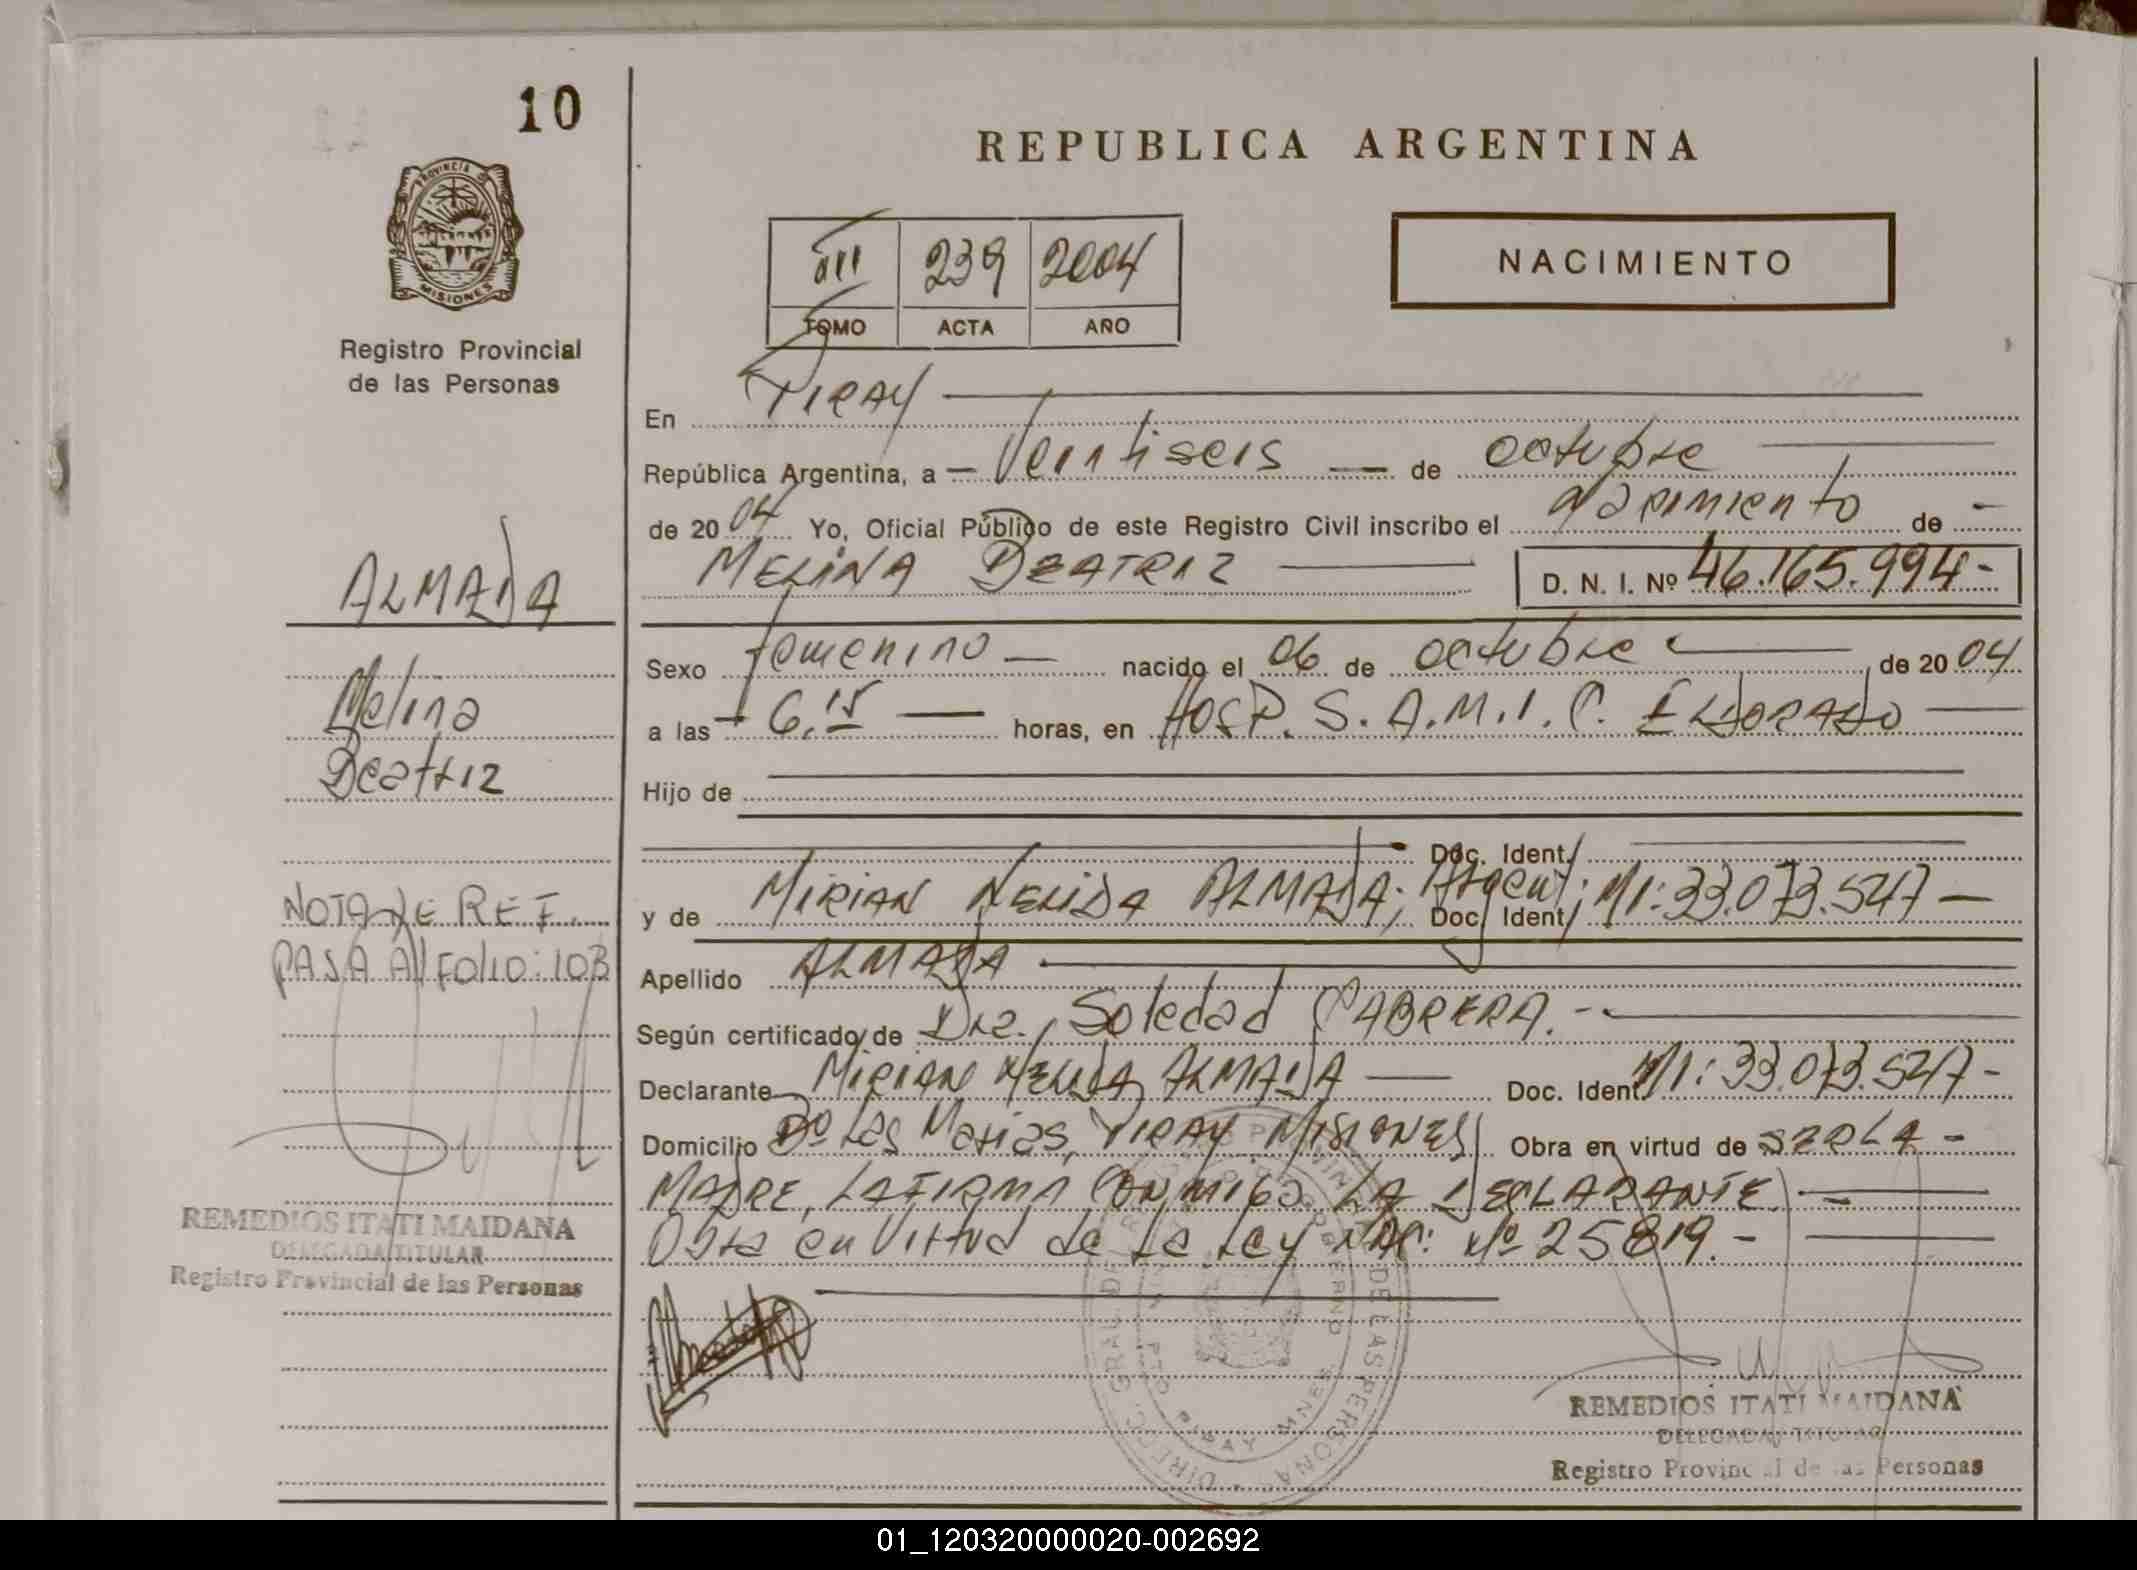 10
PROVINCIA DE
MISIONES
Registro Provincial
de las Personas
ALMADA
Melina
Beatriz
NOTA DE REF.
PASA Al FOLIO: 103
REMEDIOS ITATI MAIDANA
DELEGADA TITULAR
Registro Provincial de las Personas
REPUBLICA ARGENTINA
III 239 2004
TOMO ACTA AÑO
NACIMIENTO
En PIRAY
República Argentina, a Veintiseis de octubre
de 2004 Yo, Oficial Público de este Registro Civil inscribo el nacimiento de
MELINA BEATRIZ D. N. I. Nº 46.165.994-
Sexo femenino nacido el 06 de octubre de 2004
a las 6,15 horas, en HOSP. S. A. M. I. C. ELDORADO
Hijo de
Doc. Ident.
y de MIRIAN NELIDA ALMADA; Argent; Doc. Ident. MI: 33.073.547
Apellido ALMADA
Según certificado de Dra. Soledad CABRERA.-
Declarante MIRIAN NELIDA ALMADA Doc. Ident. MI: 33.073.547-
Domicilio Bº Las Marias, PIRAY MISIONES Obra en virtud de SER LA -
MADRE, LA FIRMA CONMIGO LA DECLARANTE
Obra en Virtud de La Ley NAC: Nº 25819.-
DIRECC. GRAL. DEL REGISTRO PROVINCIAL DE LAS PERSONAS
PIRAY MNES.
REMEDIOS ITATI MAIDANA
DELEGADA TITULAR
Registro Provincial de las Personas
01_120320000020-002692